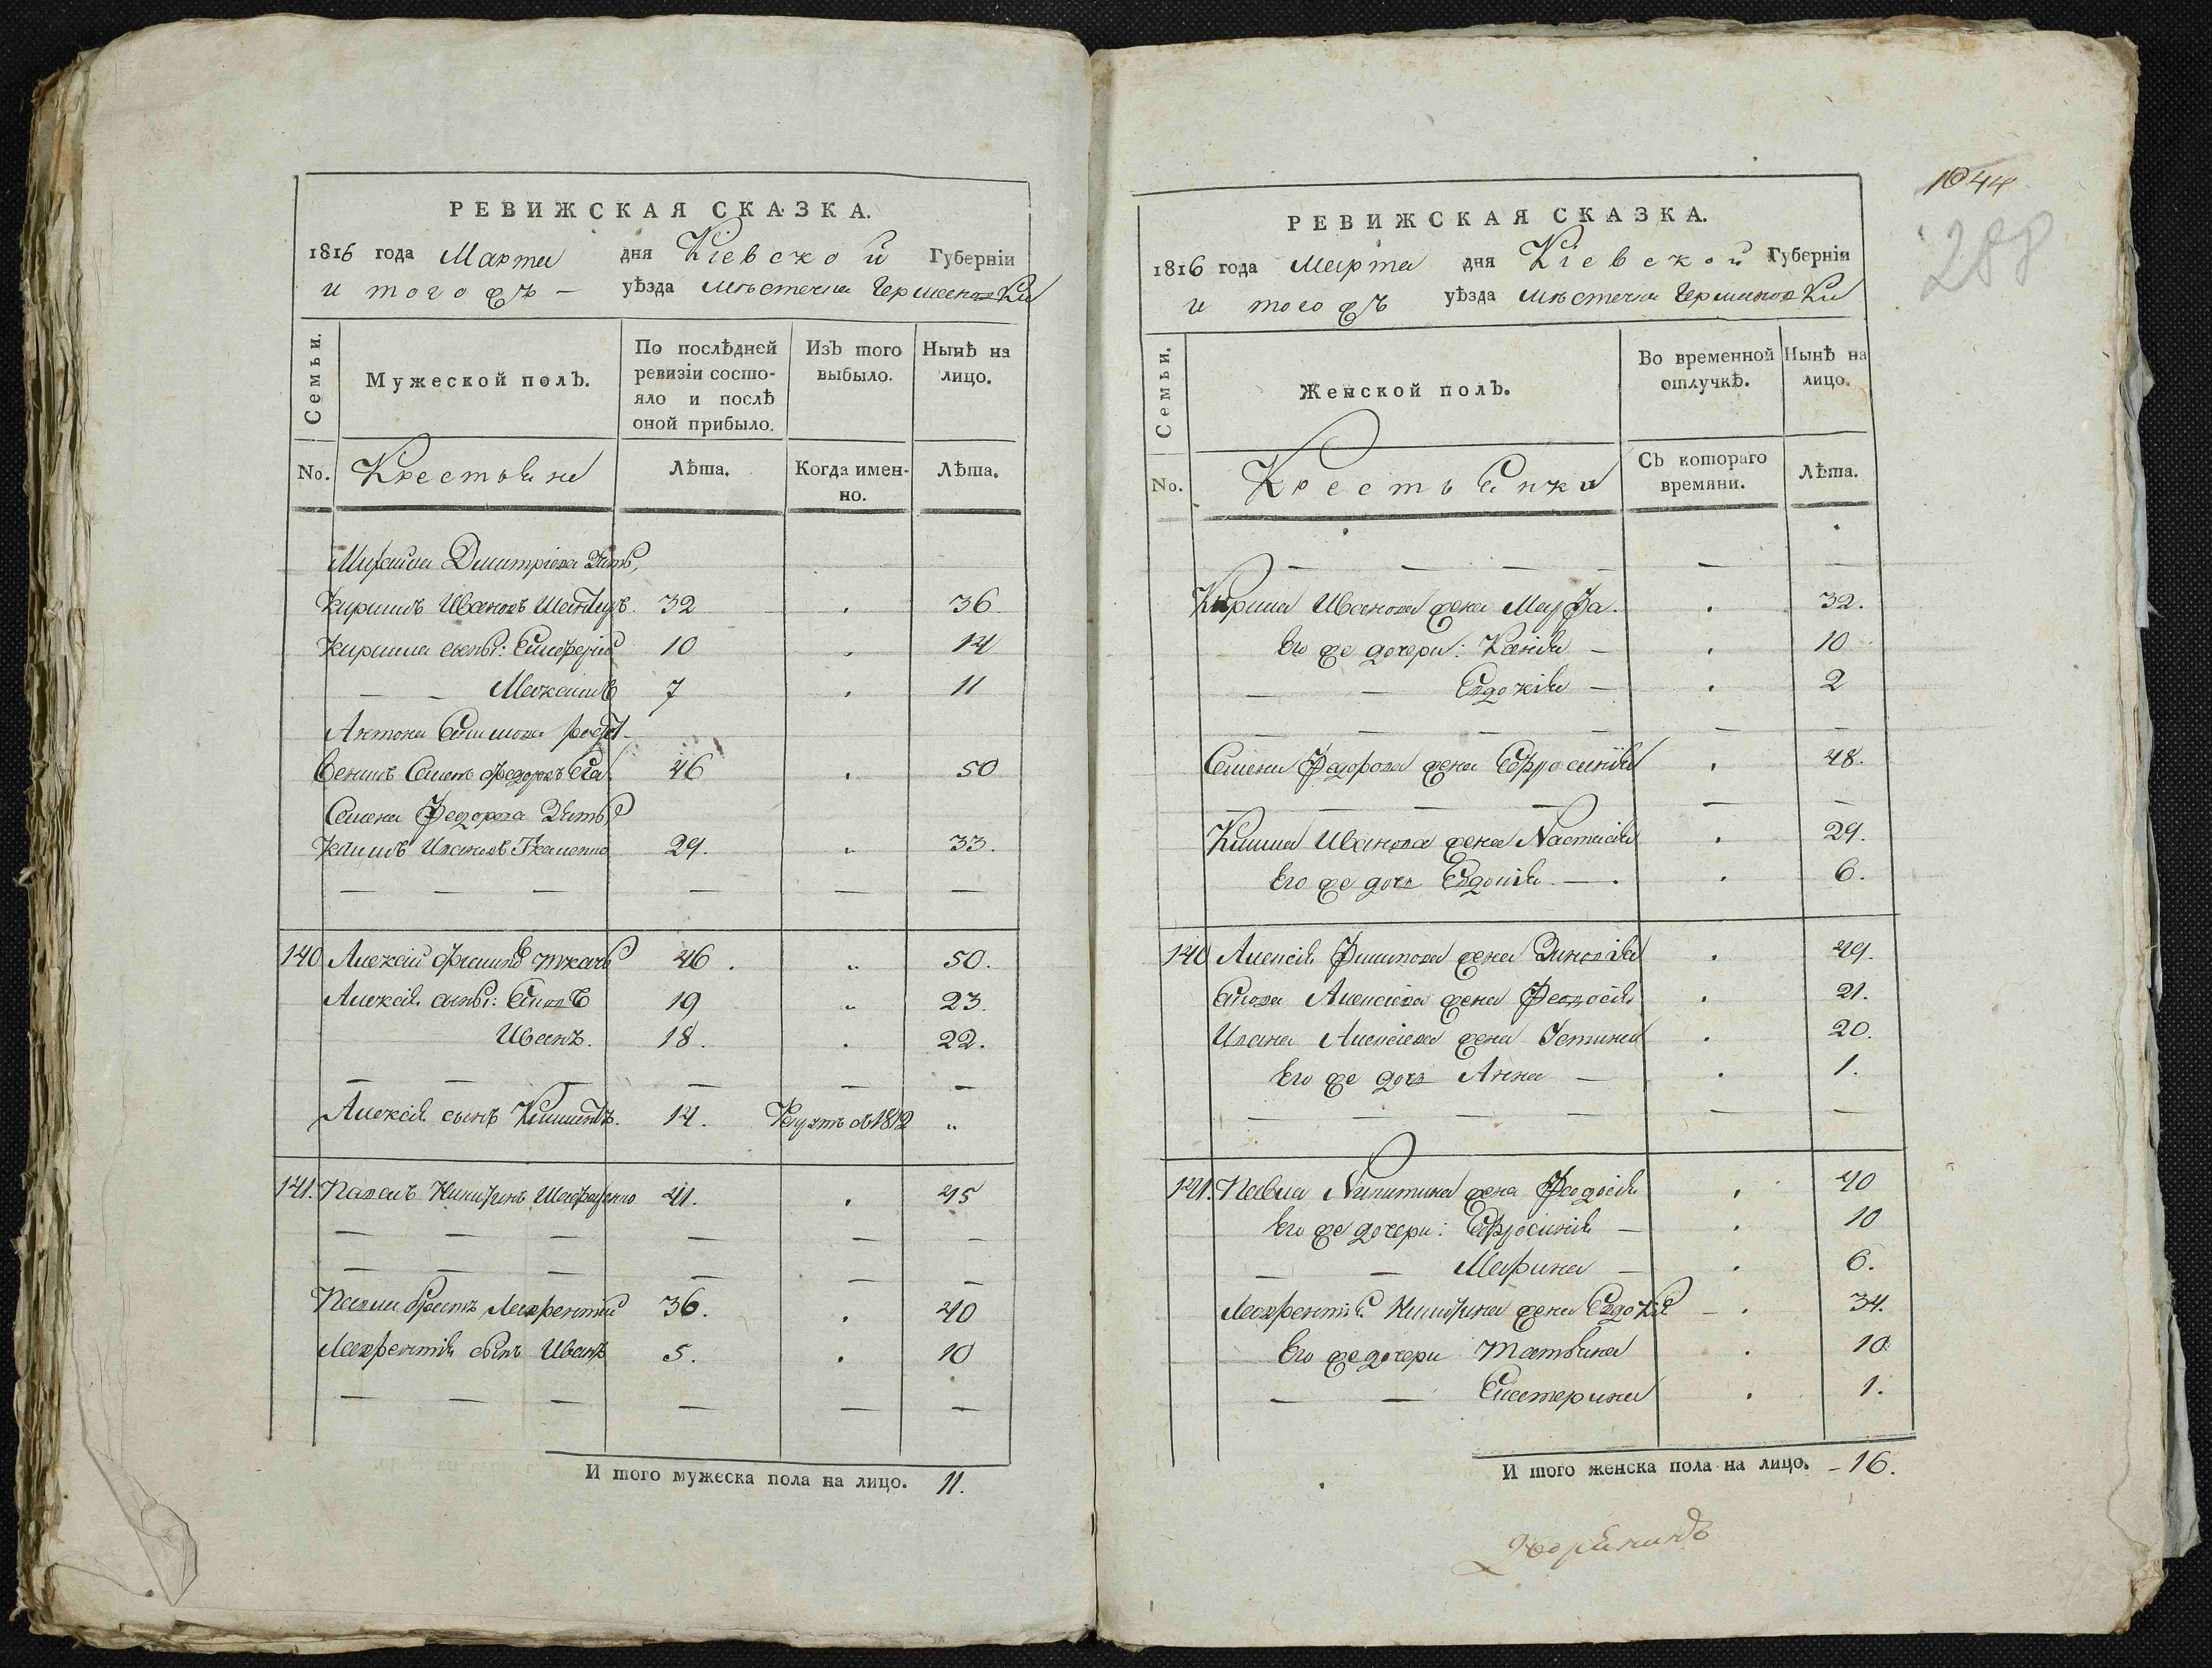 РЕВИЖСКАЯ СКАЗКА.
1816 года Марта дня Кіевской Губерніи
и того жъ — уѣзда мѣстечка Германовки
Семьи.
Мужеской полЪ.
По послѣдней ревизіи состояло и послѣ оной прибыло.
ИзЪ того выбыло.
НынѢ на лицо.
No. Крестьяне
ЛѢта.
Когда именно.
ЛѢта.
Михайла Дмитріева Зять,
Кирилъ Ивановъ 32 36.
Кирилла сыны: Елиферій 10 14
Максимъ 7 11
Антона
Семенъ Федоровъ 46 50
Семена Федорова Зять
Климъ Ивановъ Ткаченко 29. 33.
140 Алексѣй Филиповъ Ткачъ 46. 50.
Алексѣя сыны: 19 23.
Иванъ. 18. 22.
Алексѣя сынъ Климентъ. 14. Рекрутъ въ 1812
141. Павелъ Никитинъ 41. 45
Павла братъ Лаврентій 36. 40
Лаврентія сынъ Иванъ 5. 10
И того мужеска пола на лицо. 11.
1044
288
РЕВИЖСКАЯ СКАЗКА.
1816 года Марта дня Кіевской Губерніи
и того жъ уѣзда мѣстечка Германовки
Семьи.
Женской полЪ.
Во временной отлучкѢ.
НынѢ на лицо.
No. Крестьянки
СЪ котораго времяни.
ЛѢта.
Кирила Иванова жена Марфа. 32.
Его же дочери: Ксенія 10
Евдокія 2
Семена Федорова жена Ефросинія 48.
Клима Иванова жена Настасія 29.
Его же дочь Евдокія 6.
140 Алексѣя Филипова жена Зиновія 49.
Алексѣева жена Феодосія 21.
Ивана Алексѣева жена Устинья 20.
Его же дочь Анна 1.
141. Павла Никитина жена Феодосія 40
Его же дочери: Ефросинія 10
Марина 6.
Лаврентія Никитина жена Евдокія 34.
Его же дочери Татьяна 10
Екатерина 1.
И того женска пола на лицо. 16.
Дворянинъ